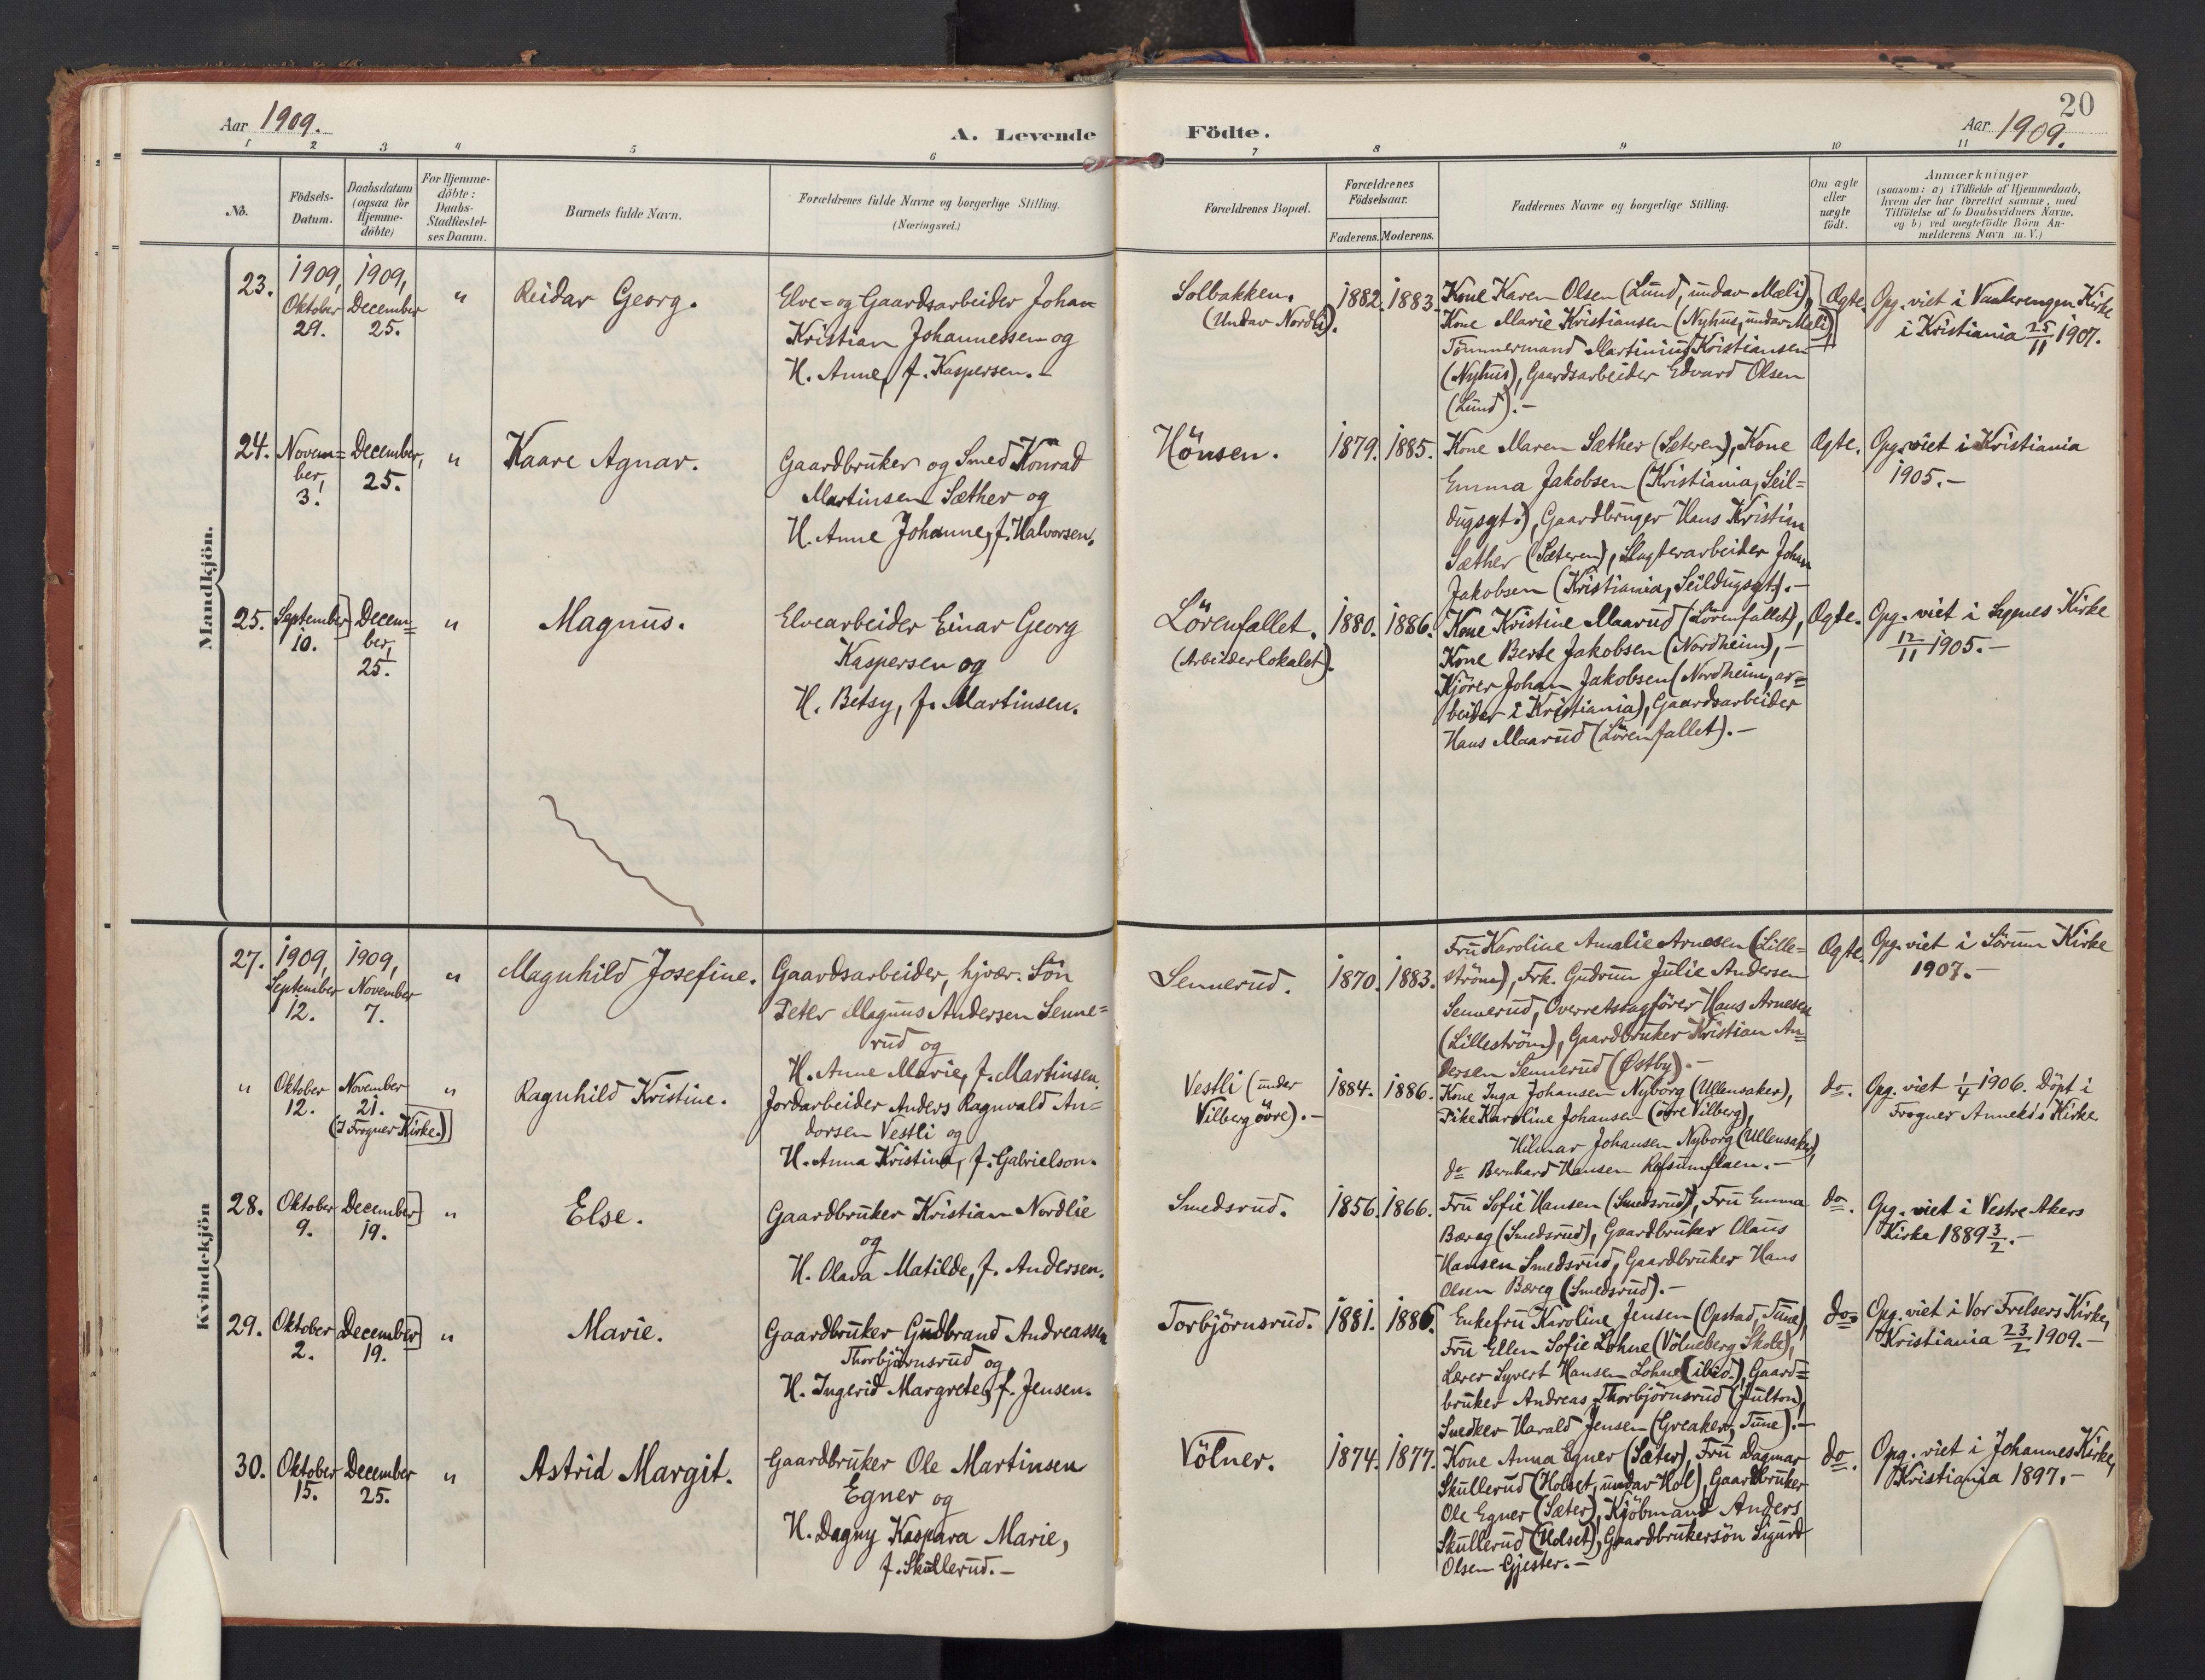 Aar 1909.
A. Levende
Födte.
20
Aar 1909.
1 2 3 4 5 6 7 8 9 10 11
No.
Födsels-
Datum.
Daabsdatum
(ogsaa for
Hjemme-
döbte)
For Hjemme-
döbte:
Daabs-
Stadfæstel-
ses Datum.
Barnets fulde Navn.
Forældrenes fulde Navne og borgerlige Stilling.
(Næringsvei.)
Forældrenes Bopæl.
Forældrenes
Födselsaar.
Faderens. Moderens.
Faddernes Navne og borgerlige Stilling.
Om ægte
eller
uægte
födt.
Anmærkninger
(saasom: a) i Tilfælde af Hjemmedaab,
hvem der har forrettet samme, med
Tilföielse af to Daabsvidners Navne,
og b) ved uægtefödte Börn An-
melderens Navn m. V.)
Mandkjön.
23.
1909,
Oktober
29.
1909,
December
25.
"
Reidar Georg.
Elve- og Gaardsarbeider Johan
Kristian Johannessen og
H. Anne, f. Kaspersen.-
Solbakken.
(Undav Nordli).
1882. 1883.
Kone Karen Olsen (Lund, undav Mæli),
Kone Marie Kristiansen (Nyhus, undav Mæli),
Tömmermand Martinius Kristiansen
(Nyhus), Gaardsarbeider Edvard Olsen
(Lund).-
Ægte.
Opg. viet i Vaalerengen Kirke
i Kristiania 25/11 1907.
24.
Novem=
ber,
3.
December,
25.
"
Kaare Agnar.
Gaardbruker og Smed Konrad
Martinsen Sæther og
H. Anne Johanne, f. Halvorsen.
Hönsen.
1879. 1885.
Kone Maren Sæther (Sæteren), Kone
Emma Jakobsen (Kristiania, Seil=
dugsgt.), Gaardbruger Hans Kristian
Sæther (Sæteren), Slagterarbeider Johan
Jakobsen (Kristiania, Seildugsgt).-
Ægte.
Opg. viet i Kristiania
1905.-
25.
September
10.
Decem=
ber,
25.
"
Magnus.
Elvearbeider Einar Georg
Kaspersen og
H. Betsy, f. Martinsen.
Lörenfallet.
(Arbeiderlokalet).
1880. 1886.
Kone Kristine Maarud (Lörenfallet),
Kone Berte Jakobsen (Nordheim),-
Kjörer Johan Jakobsen (Nordheim, ar=
beider i Kristiania), Gaardsarbeider
Hans Maarud (Lörenfallet).-
Ægte.
Opg. viet i Sagenes Kirke
12/11 1905.-
Kvindekjön
27.
1909,
September
12.
1909,
November
7.
"
Magnhild Josefine.
Gaardsarbeider, hjvær. Sön
Peter Magnus Andersen Senne=
rud og
H. Anne Marie, f. Martinsen.
Sennerud.
1870. 1883.
Fru Karoline Amalie Arnesen (Lille=
ström), Frk. Gudrun Julie Andersen
Sennerud, Overretssagförer Hans Arnesen
(Lilleström), Gaardbruker Kristian An=
dersen Sennerud (Østby).-
Ægte.
Opg. viet i Sörum Kirke
1907.-
"
Oktober
12.
November
21.
(I Frogner Kirke.)
"
Ragnhild Kristine.
Jordarbeider Anders Ragnvald An=
dersen Vestli og
H. Anna Kristina, f. Gabrielson.
Vestli (under
Vilberg övre).-
1884. 1886.
Kone Inga Johansen Nyborg (Ullensaker),
Pike Karoline Johansen (övre Vilberg),
Hilmar Johansen Nyborg (Ullensaker),
do Bernhard Hansen Refsumflaen.-
do.
Opg. viet 1/4 1906. Döpt i
Frogner Anneks's Kirke
28.
Oktober
9.
December
19.
"
Else.
Gaardbruker Kristian Nordlie
og
H. Olava Matilde, f. Andersen.
Smedsrud.
1856. 1866.
Fru Sofie Hansen (Smedsrud), Fru Emma
Bæreg (Smedsrud), Gaardbruker Olaus
Hansen Smedsrud, Gaardbruker Hans
Olsen Bæreg (Smedsrud).-
do.
Opg. viet i Vestre Akers
Kirke 1889 3/2.-
29.
Oktober
2.
December
19.
"
Marie.
Gaardbruker Gudbrand Andreassen
Thorbjörnsrud og
H. Ingerid Margrete, f. Jensen.
Torbjörnsrud.
1881. 1886.
Enkefru Karoline Jensen (Opstad, Tune),
Fru Ellen Sofie Lohne (Völneberg Skole),
Lærer Syvert Hansen Lohne (ibid.), Gaard=
bruker Andreas Thorbjörnsrud (Jülton),
Snedker Harald Jensen (Greaker, Tune).-
do.
Opg. viet i Vor Frelsers Kirke,
Kristiania 23/2 1909.-
30.
Oktober
15.
December
25.
"
Astrid Margit.
Gaardbruker Ole Martinsen
Egner og
H. Dagny Kaspara Marie,
f. Skullerud.-
Völner.
1874. 1877.
Kone Anna Egner (Sæter), Fru Dagmar
Skullerud (Holset, undav Hol), Gaardbruker
Ole Egner (Sæter), Kjöbmand Anders
Skullerud (Holset), Gaardbrukersön Sigurd
Olsen Gjester.-
do.
Opg. viet i Johannes Kirke,
Kristiania 1897.-